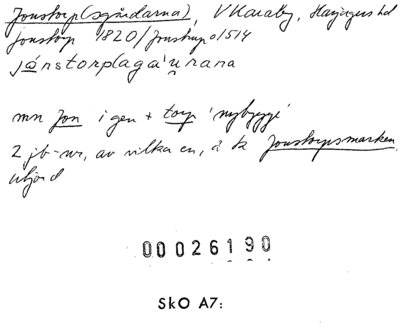 Jonstorp(sgårdarna), V Karaby, Harjagers hd
Jonstorp 1820/Jonstrup o1514
jånstorplaga'u̯rana
mn Jon i gen + torp 'nybygge'
2 jb-nr, av vilka en, å Ek Jonstorpsmarken,
utjord
00026190
SkO A7: